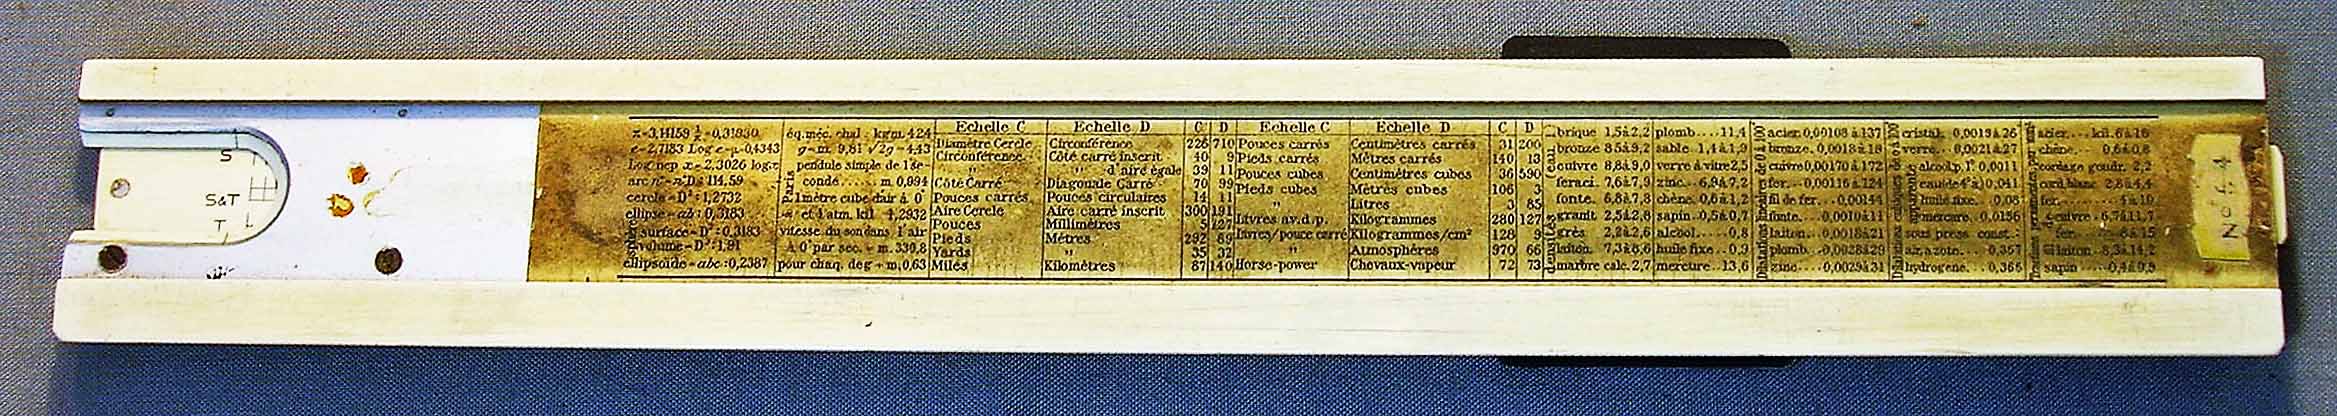 S
S&T
T
L
π=3,14159 1/π=0,31830
e=2,7183 Log e=μ=0,4343
Log nep x=2,3026 log x
arc n°=n°D: 114.59
cercle=D²:1,2732
ellipse=ab:0,3183
surface=D²:0,3183
volume=D³:1,91
ellipsoïde=abc:0,2387
éq. méc. chal. kgm. 424
g=m. 9,81 √2g=4,43
pendule simple de 1 se-
conde...... m 0,994
Paris
1 mètre cube d'air à 0°
et 1 atm. kil. 1,2932
vitesse du son dans l'air
à 0° par sec. = m. 330,8
pour chaq. deg + m, 0,63
Echelle C Echelle D C D
Diamètre Cercle Circonférence 226 710
Circonférence Côté carré inscrit 40 9
" " d'aire égale 39 11
Côté Carré Diagonale Carré 70 99
Pouces carrés Pouces circulaires 14 11
Aire Cercle Aire carré inscrit 300 191
Pouces Millimètres 5 127
Pieds Mètres 292 89
Yards " 35 32
Miles Kilomètres 87 140
Echelle C Echelle D C D
Pouces carrés Centimètres carrés 31 200
Pieds carrés Mètres carrés 140 13
Pouces cubes Centimètres cubes 36 590
Pieds cubes Mètres cubes 106 3
" Litres 3 85
Livres av.d.p. Kilogrammes 280 127
Livres/pouce carré Kilogrammes/cm² 128 9
" Atmosphères 970 66
Horse-power Chevaux-vapeur 72 73
densités (eau
brique 1,5à2,2
bronze 8,5à9,2
cuivre 8,8à9,0
fer aci. 7,6à7,9
fonte. 6,8à7,8
granit 2,5à2,8
grès. 2,2à2,6
laiton. 7,3à8,6
marbre calc. 2,7
plomb.... 11,4
sable 1,4à1,9
verre à vitre 2,5
zinc... 6,9à7,2
chêne. 0,6à1,2
sapin.. 0,5à0,7
alcool..... 0,8
huile fixe.. 0,9
mercure.. 13,6
Dilatations linéaires de 0 à 100
acier. 0,00108 à 137
bronze. 0,0018 à 19
cuivre. 0,00170 à 172
fer... 0,00116 à 124
fil de fer... 0,00144
fonte... 0,0010 à 11
laiton... 0,0018 à 21
plomb.. 0,0028 à 29
zinc.... 0,0029 à 31
cristal. 0,0019 à 26
verre.. 0,0021 à 27
alcool p. 1° 0,0011
eau (de 4° à) 0,041
huile fixe. 0,08
mercure. 0,0156
sous press. const.
air, azote... 0,367
hydrogène... 0,366
acier.... kil. 6 à 16
chêne... 0,6 à 0,8
cordage goudr. 2,2
cord. blanc 2,8 à 4,4
fer........ 4 à 10
cuivre. 6,7 à 11,7
fer.... 6 à 15
laiton. 8,3 à 14,2
sapin.... 0,4 à 0,9